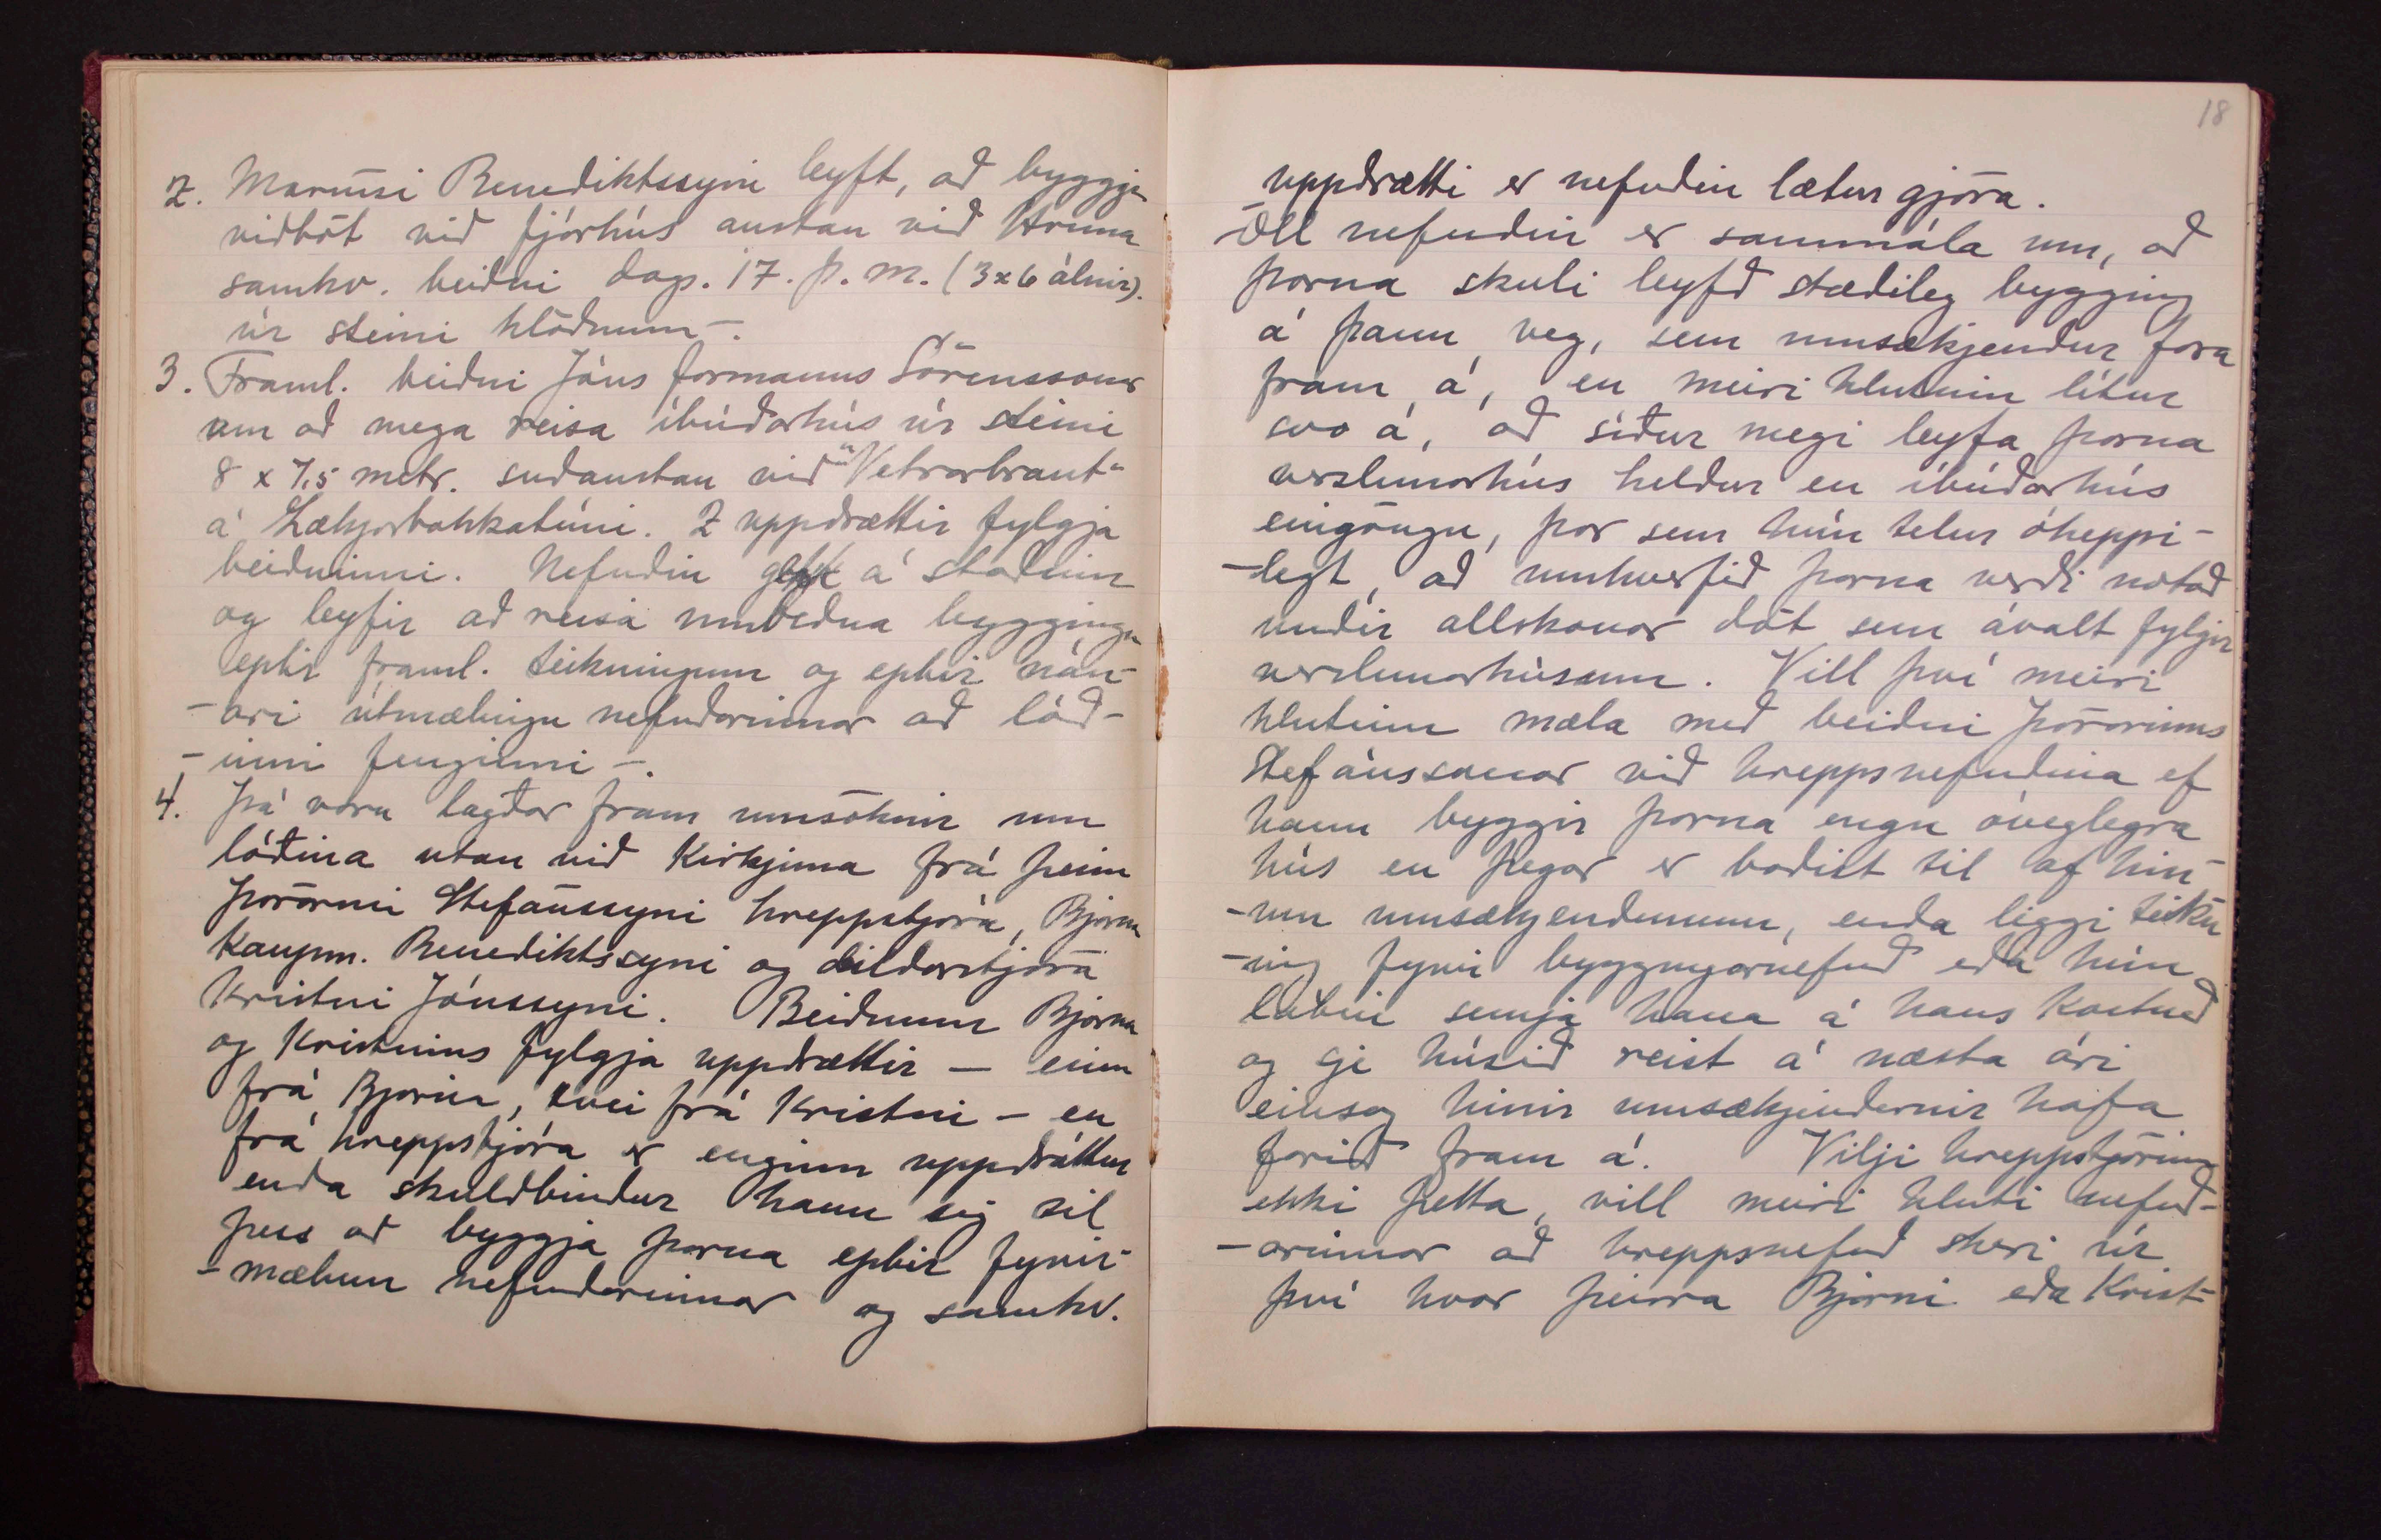 2. Maruisi Benediktssyni leyft, að byggja
viðbót við fjórhús austan við Hruna
samkv. beiðni dags. 17. þ. m. (3x6 álnir).
úr steini hlöðnum –.
3. Framl. beiðni Jóns formanns Sörenssonar
um að mega reisa íbúðarhús úr steini
8 x 7,5 metr. suðaustan við "Vetrarbraut"
á Lækjarbakkatúni. 2 uppdrættir fylgja
beiðninni. Nefndin gekk á staðinn
og leyfir að reisa umbeðna byggingu
eptir framl. teikningum og eptir nán-
-ari útmælingu nefndarinnar að lóð-
-inni fenginni –.
4. Þá voru lagðar fram umsóknir um
lóðina utan við Kirkjuna frá þeim
Þórarni Stefánssyni hreppstjóra, Birni
kaupm. Benediktssyni og deildarstjóra
Kristni Jónssyni. Beiðnum Bjarna
og Kristinns fylgja uppdrættir – einn
frá Birni, tvei frá Kristni – en
frá hreppstjóra er enginn uppdráttur
enda skuldbindur hann sig til
þess að byggja þarna eptir fyrir-
-mælum nefndarinnar og samkv.
18
uppdrætti er nefndin lætur gjöra.
Öll nefndin er sammála um, að
þarna skuli leyfð stæðileg bygging
á þann veg, sem umsækjendur fara
fram á, en meiri hlutinn lítur
svo á, að síður megi leyfa þarna
verzlunarhús heldur en íbúðarhús
eingöngu, þar sem hún telur óheppi-
-legt, að umhverfið þarna verði notað
undir allskonar dót sem ávalt fylgir
verzlunarhúsum. Vill því meiri
hlutinn mæla með beiðni Þórarinns
Stefánssonar við hreppsnefndina ef
hann byggir þarna engu óveglegra
hús en þegar er boðist til af hin-
-um umsækjendunum, enda liggi teikn
-ing fyrir byggingarnefnd eða hún
látin semja hana á hans kostnað
og sje húsið reist á næsta ári
einsog hinir umsækjendurnir hafa
farið fram á. Vilji hreppstjórinn
ekki þetta, vill meiri hluti nefnd-
-arinnar að hreppsnefnd skeri úr
því hvor þeirra Bjarni eða Krist-